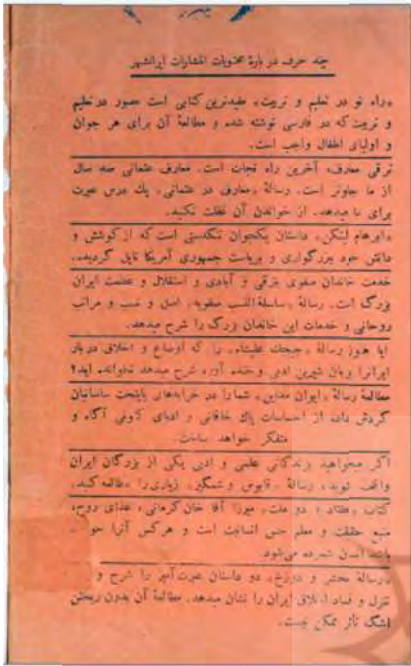 چند حرف در بارهٔ محتویات انتشارات ایرانشهر
«راه نو در تعلیم و تربیت» مفیدترین کتابی است مصور در تعلیم
و تربیت که در فارسی نوشته شده و مطالعهٔ آن برای هر جوان
و اولیای اطفال واجب است.
ترقی معارف، آخرین راه نجات است. معارف عثمانی صد سال
از ما جلوتر است. رسالهٔ «معارف در عثمانی» یك درس عبرت
برای ما میدهد. از خواندن آن غفلت نکنید.
«ابرهام لینکن» داستان یکجوان تنگدستی است که از کوشش و
دانش خود ببزرگواری و بریاست جمهوری آمریکا نایل گردیده.
خدمت خاندان صفوی بترقی و آبادی و استقلال و عظمت ایران
بزرگ است. رسالهٔ «سلسلةالنسب صفویه» اصل و نسب و مراتب
روحانی و خدمات این خاندان بزرگ را شرح میدهد.
آیا هنوز رسالهٔ «جیجك علیشاه» را که اوضاع و اخلاق دربار
ایرانرا بزبان شیرین ادبی و خنده آور شرح میدهد نخوانده اید؟
مطالعهٔ رسالهٔ «ایوان مداین» شما را در خرابه‌های پایتخت ساسانیان
گردش داده از احساسات پاك خاقانی و ادبای کنونی آگاه و
متفکر خواهد ساخت.
اگر میخواهید بزندگانی علمی و ادبی یکی از بزرگان ایران
واقف شوید، رسالهٔ «قابوس وشمگیر» زیاری را مطالعه کنید.
کتاب «هفتاد و دو ملت» میرزا آقا خان کرمانی، غذای روح،
منبع حقیقت و معلم حس انسانیت است و هرکس آنرا
باشد انسان شمرده می‌شود
«رسالهٔ محشر و دوزخ» دو داستان عبرت‌آمیز را شرح و
تنزل و فساد اخلاق ایران را نشان میدهد. مطالعهٔ آن بدون ریختن
اشگ تأثر ممکن نیست.